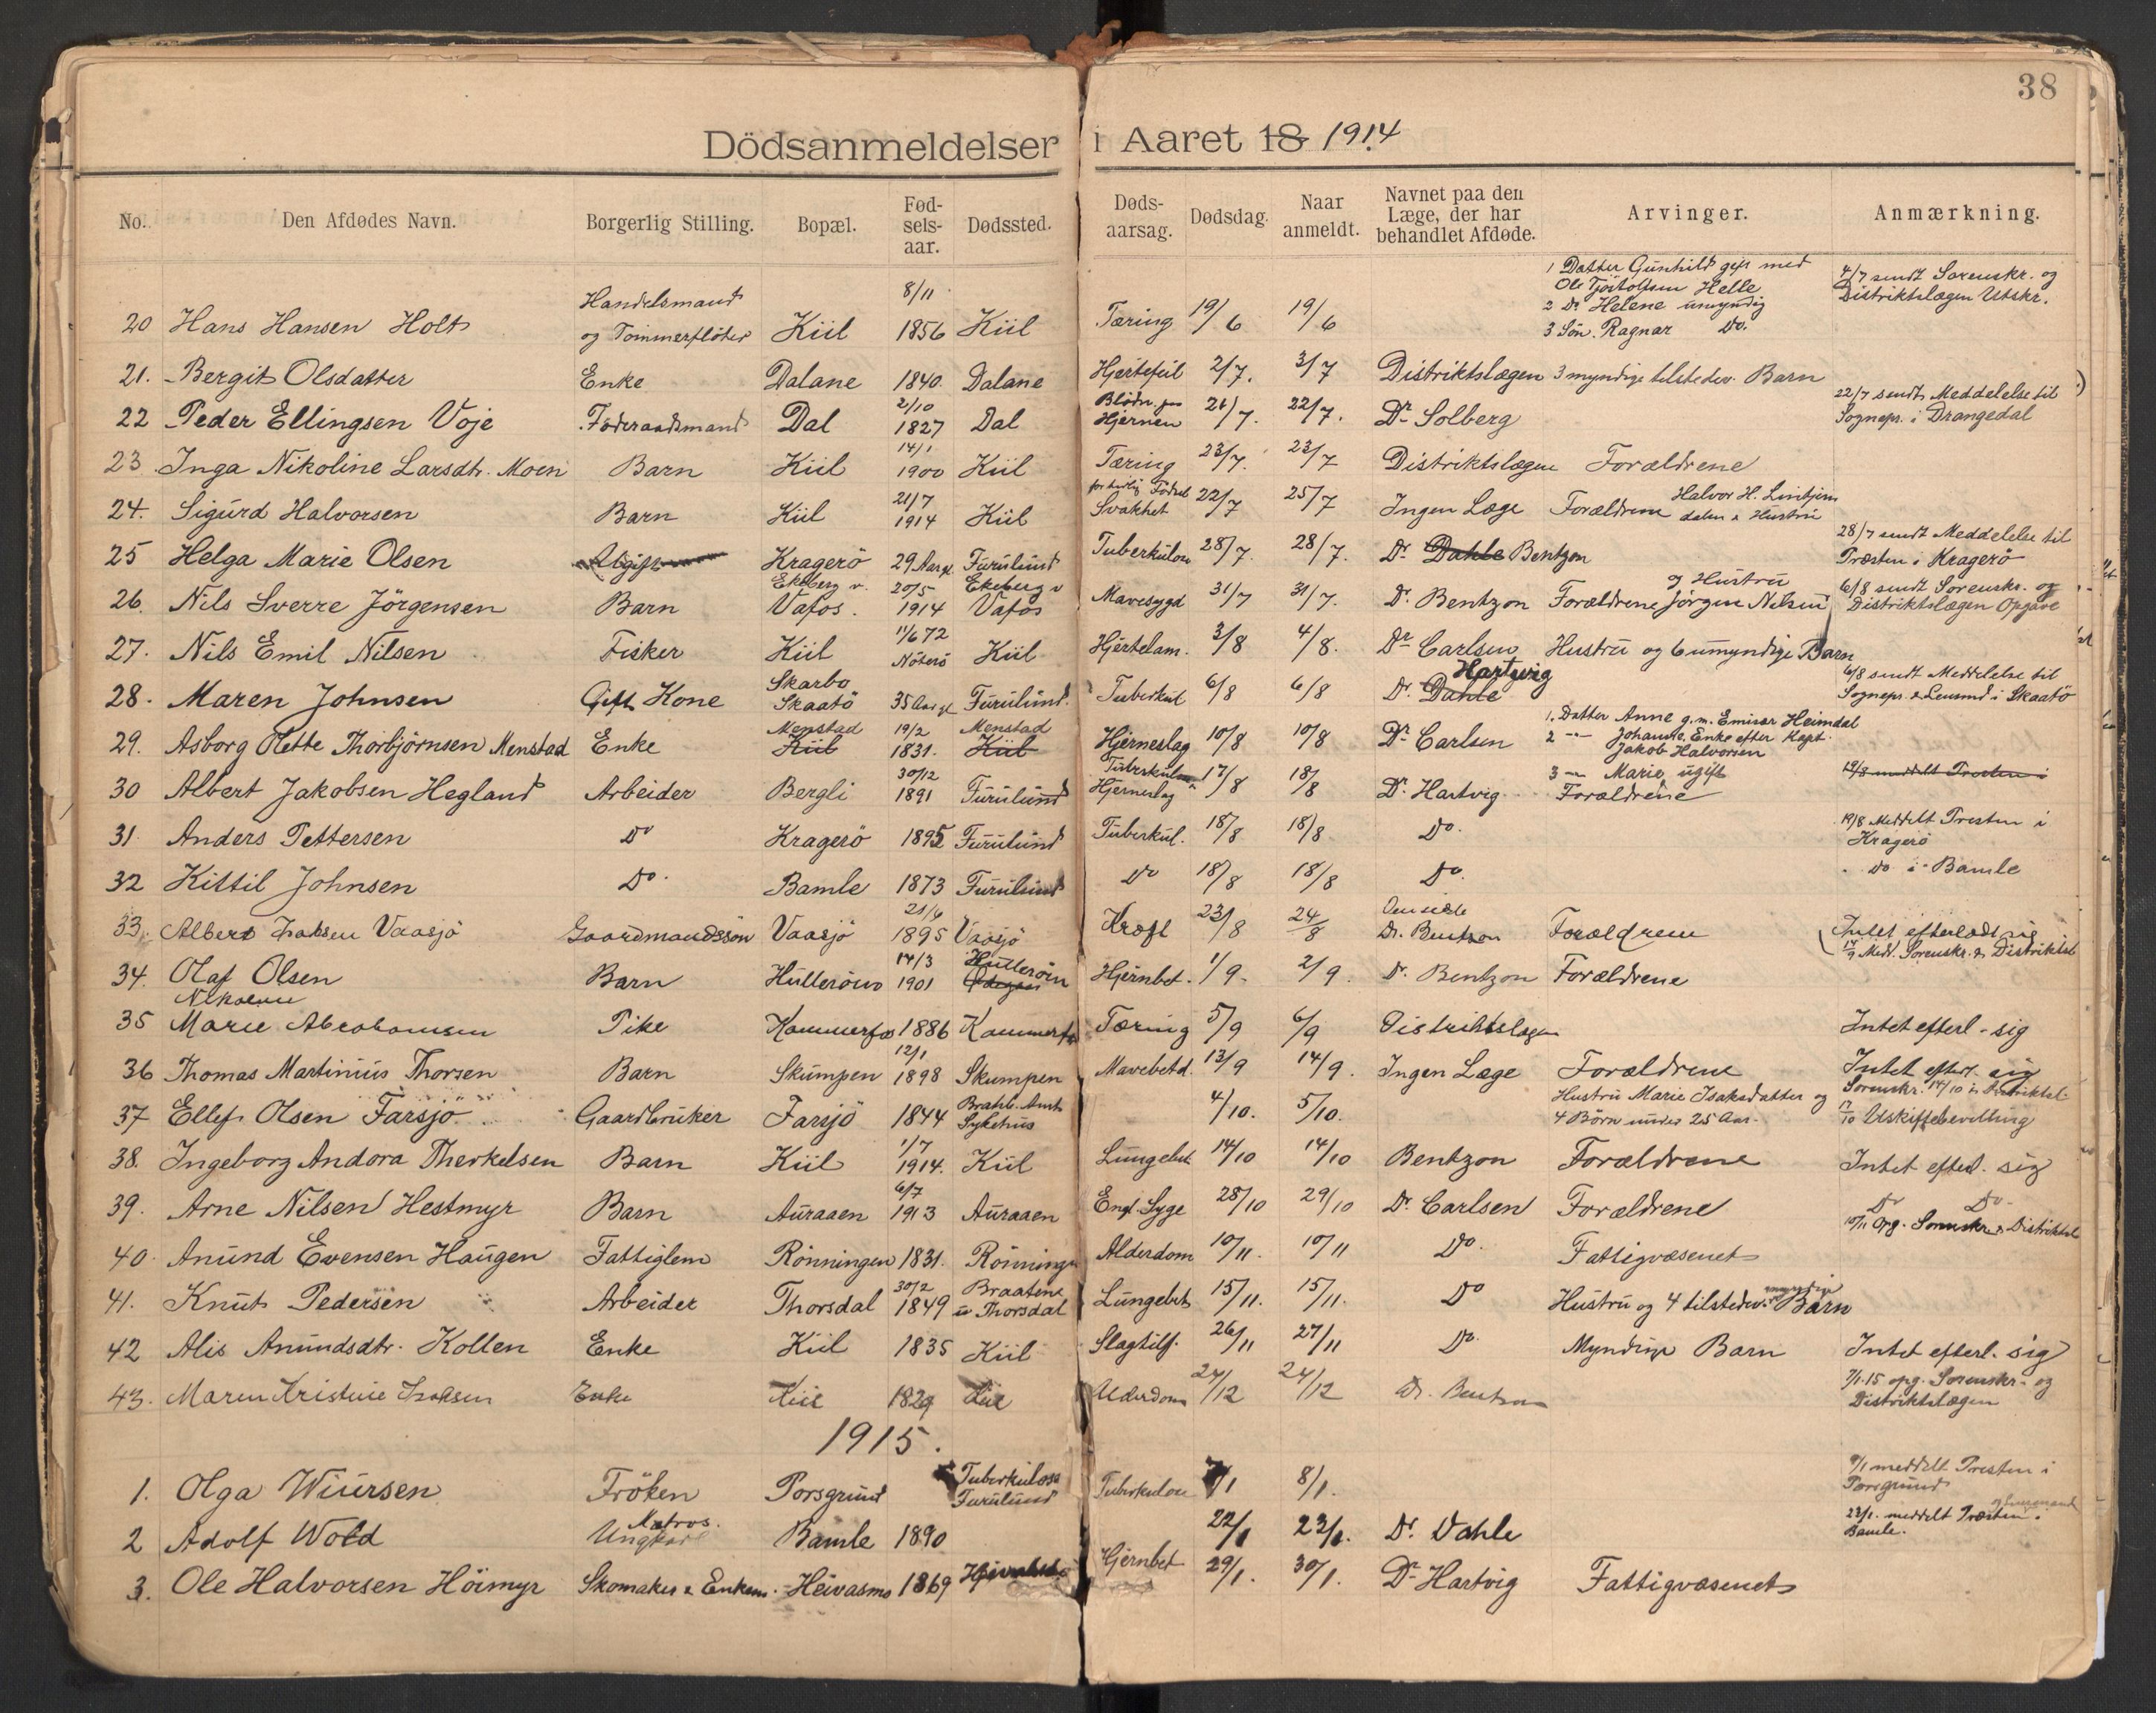 38
Dödsanmeldelser i Aaret 18 1914
No. Den Afdødes Navn. Borgerlig Stilling. Bopæl. Fødselsaar. Dødssted. Dødsaarsag. Dødsdag. Naar anmeldt. Navnet paa den Læge, der har behandlet Afdøde. Arvinger. Anmærkning.
20 Hans Hansen Holt Handelsmand og Tømmerfløter Kiil 8/11 1856 Kiil Tæring 19/6 19/6 1 Datter Gunhild gift med Ole Helle 2 Do Helene umyndig 3 Søn Ragnar Do. 4/7 sendt Sorenskr. og Distriktslægen Utskr.
21. Bergit Olsdatter Enke Dalane 1840. Dalane Hjertefeil 2/7. 3/7 Distriktslægen 3 myndige tilstedev. Barn
22 Peder Ellingsen Voje Føderaadsmand Dal 2/10 1827 Dal Blødn. paa Hjernen 21/7. 22/7. Dr Solberg 22/7 sendt Meddelelse til Sognepr. i Drangedal
23 Inga Nikoline Larsdtr. Moen Barn Kiil 14/1 1900 Kiil Tæring 23/7. 23/7 Distriktslægen Forældrene
24. Sigurd Halvorsen Barn Kiil 21/7 1914 Kiil for tidlig Fødsel Svakhet 22/7 25/7 Ingen Læge Forældrene Halvor H. dalen & Hustru
25 Helga Marie Olsen Ugift Kragerö 29 Aar gl Furulund Tuberkulose 28/7. 28/7. Dr. Dahle Bentzon 28/7 sendt Meddelelse til Præsten i Kragerö
26. Nils Sverre Jörgensen Barn Ekeberg v. Vafos. 20/5 1914 Ekeberg v Vafos Mavesygd 31/7 31/7. Dr. Bentzon Forældrene Jörgen Nilsen og Hustru 6/8 sendt Sorenskr. og Distriktslægen Opgave
27. Nils Emil Nilsen Fisker Kiil 11/6 72 Nøterö Kiil Hjertelam. 3/8 4/8. Dr Carlsen Hustru og 6 umyndige Barn
28. Maren Johnsen Gift Kone Skarbo Skaatö 35 Aar gl Furulund. Tuberkul 6/8 6/8 Dr. Dahle Hartvig 6/8 sendt Meddelelse til Sognepr. & Lensmd i Skaatö
29. Asborg Olette Thorbjörnsen Menstad Enke Menstad Kiil 19/2 1831. Menstad Kiil Hjerneslag 10/8 10/8 Dr Carlsen 1. Datter Anne g.m. Emisær Heimdal 2 -"- Johanne. Enke efter Kapt. Jakob Halvorsen 3 -"- Marie, ugift
30 Albert Jakobsen Hegland Arbeider Bergli 30/12 1891 Furulund Tuberkulose Hjerneslag 17/8 18/8 Dr. Hartvig Forældrene 19/8 meddelt Præsten i
31. Anders Pettersen Do Kragerö 1895 Furulund Tuberkul. 18/8 18/8 Do. 19/8 Meddelt Presten i Kragerö
32 Kittil Johnsen Do. Bamle 1873 Furulund Do 18/8 18/8 Do. Do i Bamle
33. Albert Isaksen Vaasjö Gaardmandssön Vaasjö 21/6 1895 Vaasjö Kræft 23/8 24/8 Dr. Bentzon Forældrene Intet efterladt sig 14/9 Medd. Sorenskr. & Distriktsl
34. Olaf Olsen Barn Hulleröen 14/3 1901 Hulleröen Hjernbet. 1/9. 2/9. Dr. Bentzon Forældrene
35 Marie Nikoline Abrahamsen Pike Kammerfos 1886 Kammerfos Tæring 5/9 6/9 Distriktslægen Intet efterl. sig
36 Thomas Martinius Thorsen Barn Skumpen 12/1 1898 Skumpen Mavebetd. 13/9 14/9. Ingen Læge Forældrene Intet efterl. sig
37 Ellef Olsen Farsjö Gaardbruker Farsjö 1844 Bratsb. Amts Sykehus 4/10. 5/10. Hustru Marie Isaksdatter og 4 Börn under 25 Aar. Sorenskr. 14/10 & Distriktsl. 17/10 Uskiftebevilling
38. Ingeborg Andora Therkelsen Barn Kiil 1/7 1914. Kiil Lungebet 14/10 14/10 Bentzon Forældrene Intet efterl. sig
39. Arne Nilsen Hestmyr Barn Auraaen 6/7 1913 Auraaen Engl. Syge 28/10 29/10 Dr. Carlsen Forældrene Do Do.
40. Anund Evensen Haugen Fattiglem Rönningen 1831. Rönningen Alderdom 10/11. 10/11 Do. Fattigvæsenet 10/11 Opg. Sorenskr. & Distriktsl
41. Knut Pedersen Arbeider Thorsdal 30/2 1849 Braatene u. Thorsdal Lungebet 15/11. 15/11. Do Hustru og 4 tilstedev. myndige Barn
42 Alis Anundsdtr. Kollen Enke Kiil 1835 Kiil Slagtilf. 26/11 27/11 Do. Myndige Barn Intet efterl. sig
43. Maren Kristine Isaksen Enke Kiil 1829 Kiil Alderdom 24/12 24/12 Dr. Bentzon 7/1-15 opg. Sorenskr. og Distriktslægen
1915.
1. Olga Wiursen Fröken Porsgrund Tuberkulose Furulund Tuberkulose 7/1 8/1. 9/1 meddelt Presten i Porsgrund
2 Adolf Wold Matros. Ungkar Bamle 1890 22/1 23/1. Dr. Dahle 23/1. meddelt Præsten og Lensmand i Bamle.
3. Ole Halvorsen Höimyr Skomaker & Enkem. Heivasmo 1869 Hjernbet 29/1. 30/1. Dr Hartvig Fattigvæsenet